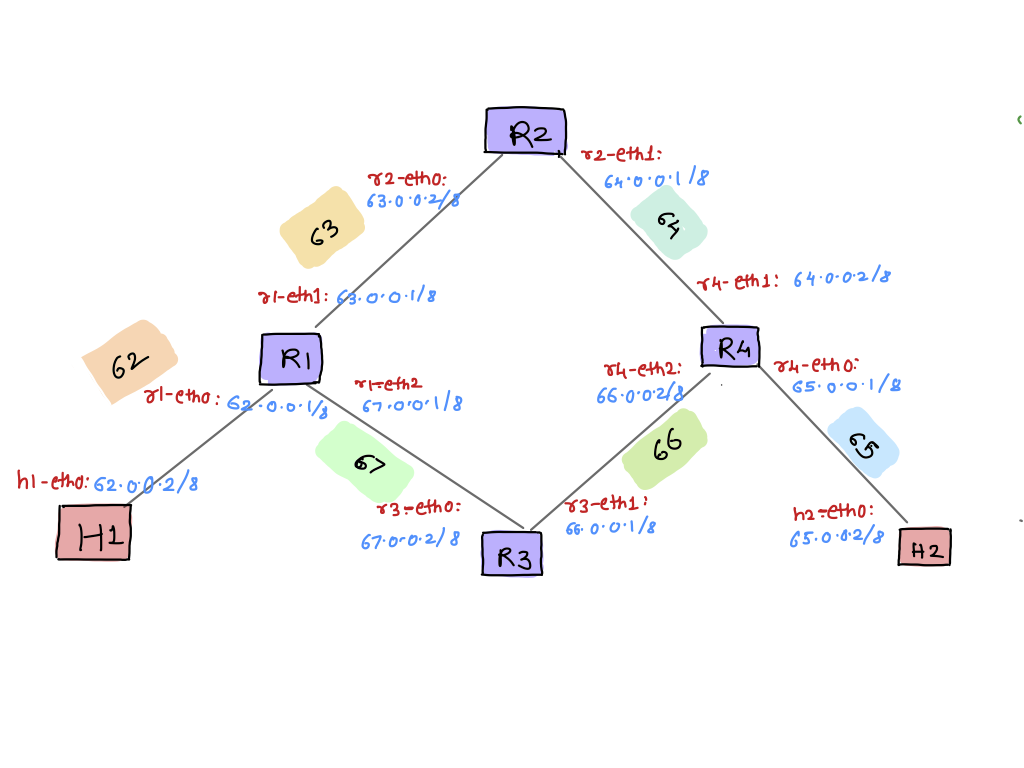 R2
r2-eth1:
64.0.0.1/8
r2-eth0:
63.0.0.2/8
63
64
r4-eth1: 64.0.0.2/8
r1-eth1: 63.0.0.1/8
R4
R1
62
r4-eth2:
66.0.0.2/8
r4-eth0:
65.0.0.1/8
r1-eth2
67.0.0.1/8
r1-eth0: 62.0.0.1/8
66
65
67
h1-eth0: 62.0.0.2/8
r3-eth0:
67.0.0.2/8
r3-eth1:
66.0.0.1/8
h2-eth0:
65.0.0.2/8
H1
R3
H2